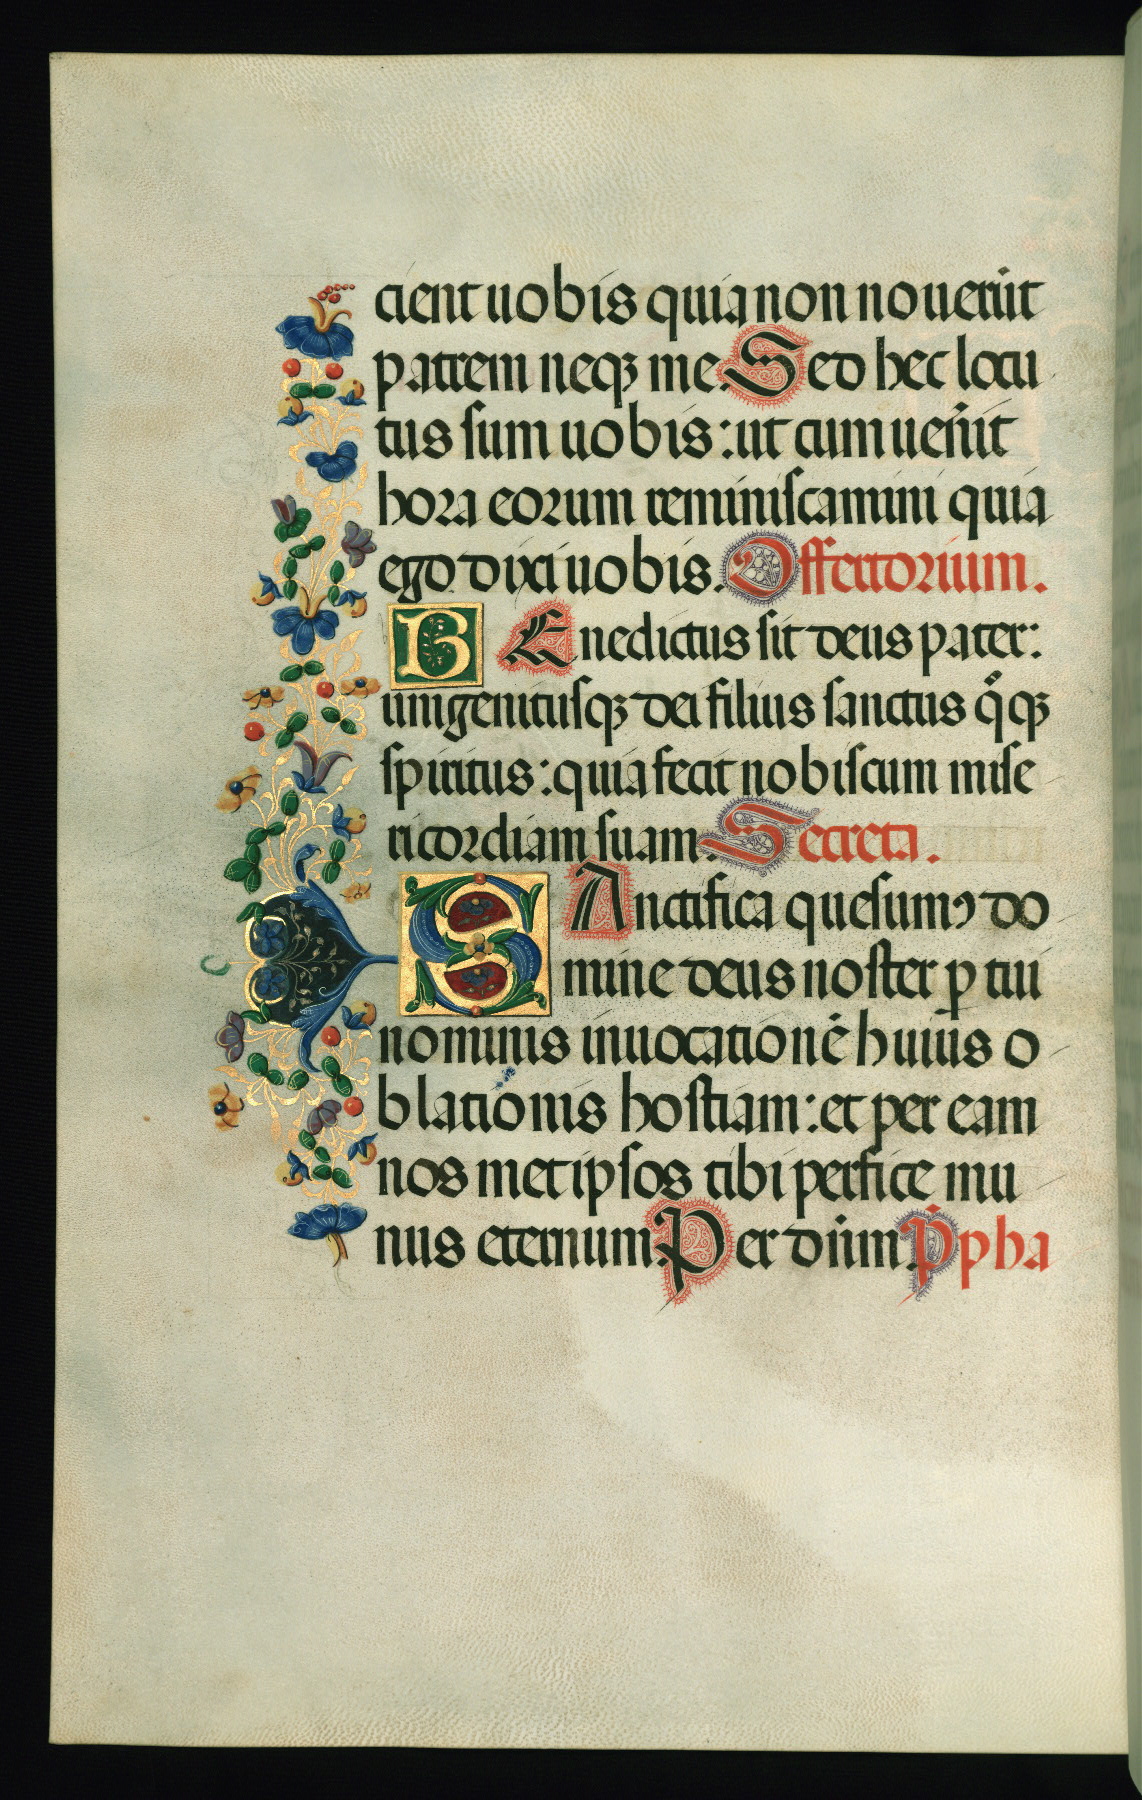 cient uobis quia non nouerūt
patrem neqꝫ me. Sed hec locu
tus sum uobis: ut cum uen̄it
hora eorum reminiscamini quia
ego dixi uobis. Offertorium.
BEnedictus sit deus pater:
unigenitusqꝫ dei filius sanctus q̊qꝫ
spiritus: quia fecit nobiscum mise
ricordiam suam. Secreta.
SAnctifica quesumꝰ do
mine deus noster ꝑ tui
nominis inuocationē huius o
blationis hostiam: et per eam
nos metipsos tibi perfice mu
nus eternum. Per dn̄m. P̄pha